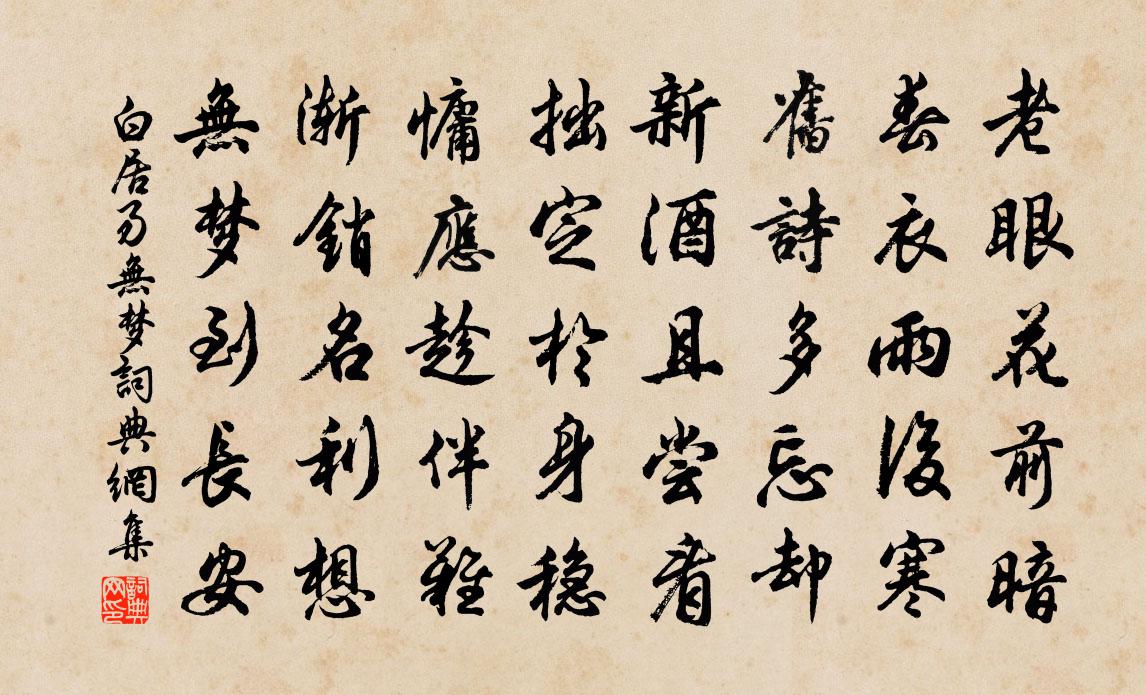 老眼花前暗
春衣雨後寒
舊詩多忘却
新酒且尝看
拙定於身穏
慵應趁伴難
渐銷名利想
無梦到長安
白居易無梦詞典網集
詞典网印